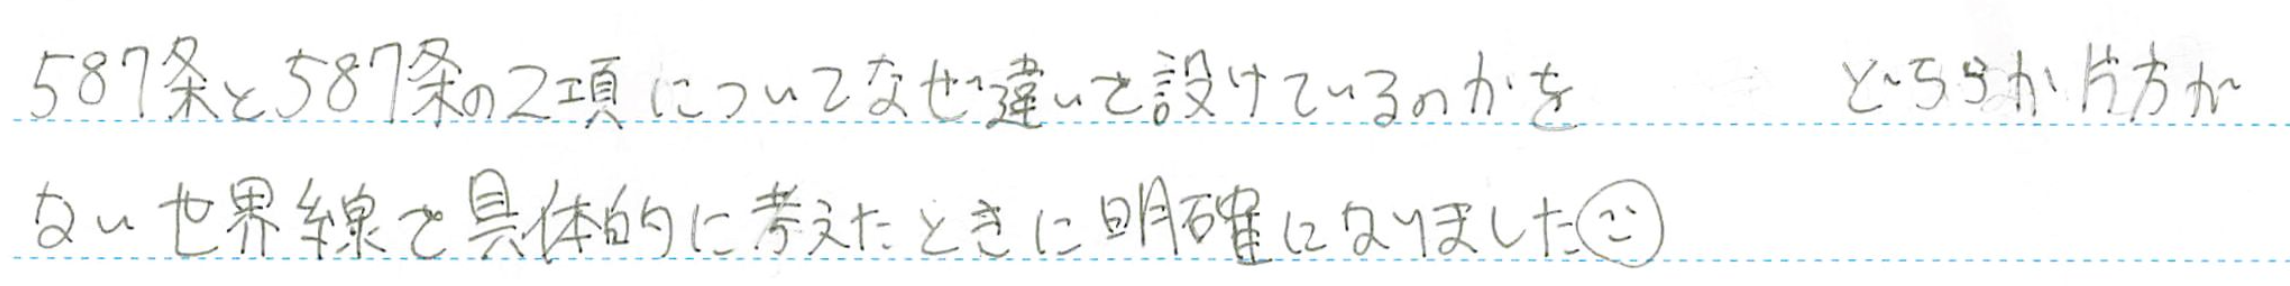 587条と587条の2項についてなぜ違いを設けているのかを どちらか片方が
ない世界線で具体的に考えたときに明確になりました